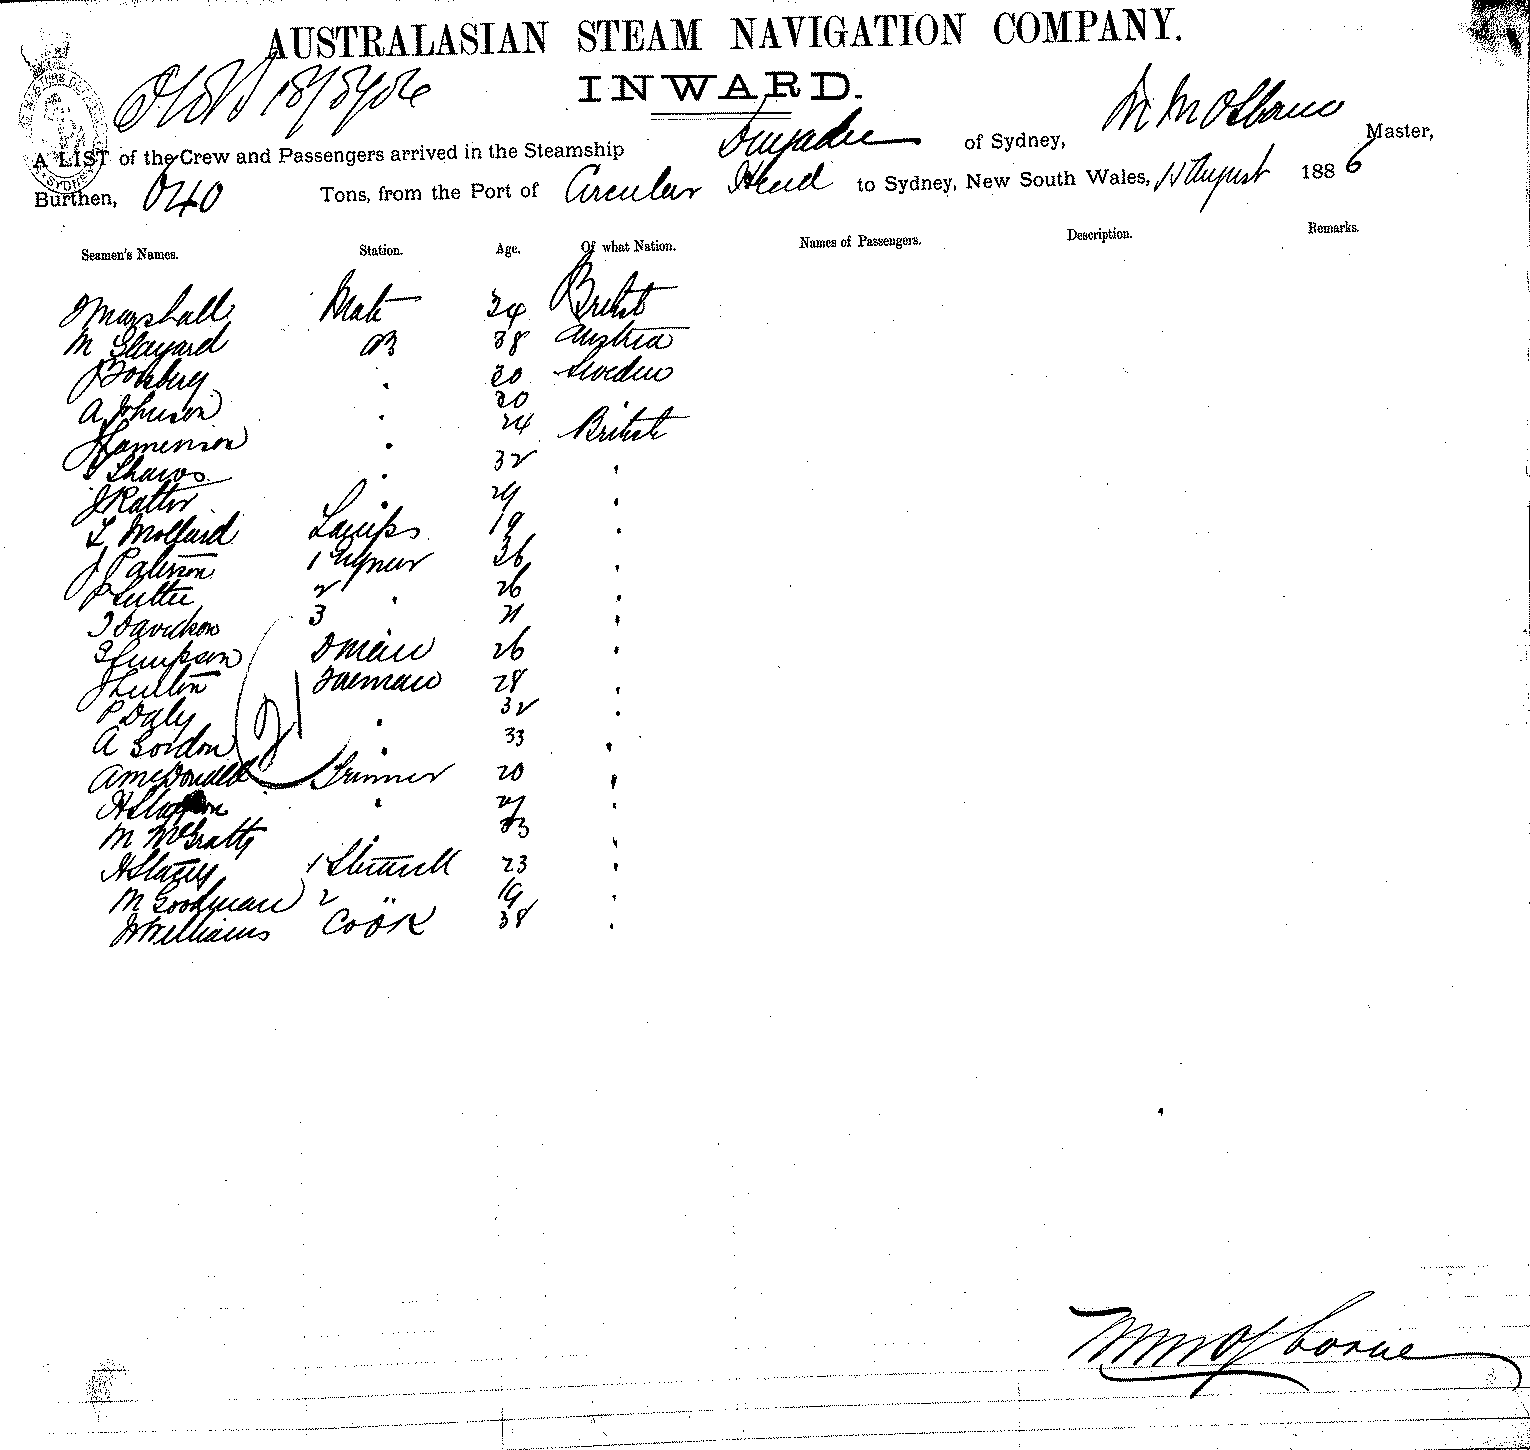 AUSTRALASIAN STEAM NAVIGATION COMPANY.
INWARD.
A LIST of the Crew and Passengers arrived in the Steamship of Sydney, W M Osborne Master,
Burthen, 840 Tons, from the Port of Circular Head to Sydney, New South Wales, August 1886
Seamen's Names. Station. Age. Of what Nation. Names of Passengers. Description. Remarks.
J Marshall Mate 34 British
M Glayard AB 38 Austria
30 Sweden
A Johnson . 30 .
J Jamieson . 24 British
. 32 .
J Ratter . 29 .
L Mollard Lamps 19 .
J Paterson 1 Engineer 36 .
2 . 26 .
J Davidson 3 21 .
S Simpson Dman 26 .
Fireman 28 .
P Daly . 32 .
A Gordon . 33 .
A McDonald Trimmer 20 .
H .
M McGrath . 23 .
H Stacey 1 Steward 23 .
M Goodman 2 " 19 .
W Williams Cook 38 .
Wm M Osborne